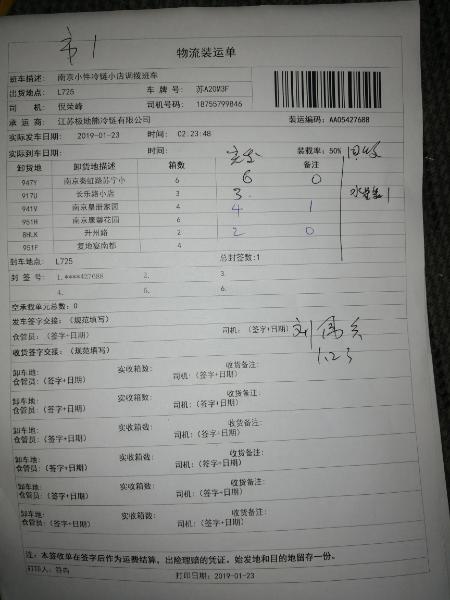 第1
物流装运单
班车描述: 南京小件冷链小店调拨班车
出货地点: L725 车牌号: 苏A20M3F
司机: 倪荣峰 司机号码: 18755799846
承运商: 江苏极地熊冷链有限公司 装运编码: AA05427688
实际发车日期: 2019-01-23 时间: 02.23:48
实际到车日期: 时间: 装载率: 50%
卸货地 卸货地描述 箱数 实发 备注 回收
947Y 南京秦虹路苏宁小 6 6 0
917U 长乐路小店 3 3
941V 南京皇册家园 4 4 1
951H 南京康馨花园 6
8HLK 升州路 2 2 0
951F 复地宴南都 4
到车地点: L725 总封签数:1
封签号: 1.****427688 2. 3.
4. 5. 6.
空承载单元总数: 0
发车签字交接: (规范填写)
仓管员: (签字+日期) 司机: (签字+日期) 刘
1.23
收货签字交接: (规范填写)
卸车地: 实收箱数: 收货备注:
仓管员: (签字+日期) 司机: (签字+日期)
卸车地: 实收箱数: 收货备注:
仓管员: (签字+日期) 司机: (签字+日期)
卸车地: 实收箱数: 收货备注:
仓管员: (签字+日期) 司机: (签字+日期)
卸车地: 实收箱数: 收货备注:
仓管员: (签字+日期) 司机: (签字+日期)
卸车地: 实收箱数: 收货备注:
仓管员: (签字+日期) 司机: (签字+日期)
卸车地: 实收箱数: 收货备注:
仓管员: (签字+日期) 司机: (签字+日期)
注: 本签收单在签字后作为运费结算, 出险理赔的凭证。始发地和目的地留存一份。
打印人: 打印日期:2019-01-23